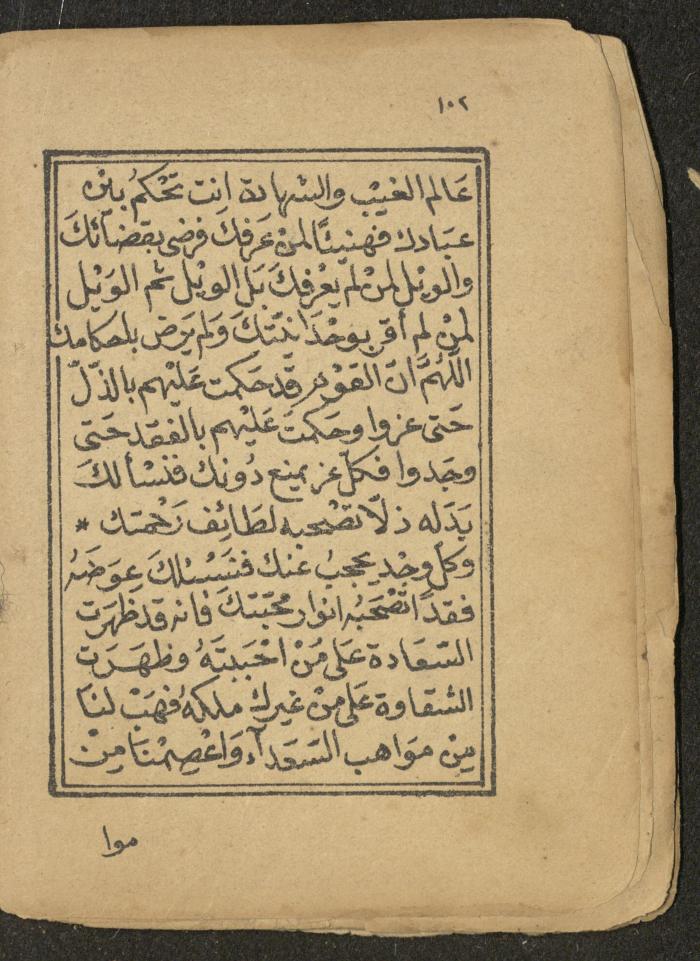 ١٠٢
عَالم الغيْب والشهادة انت تَحْكمُ بين
عبَادك فهَنيئًا لمنْ عَرفكَ فرضى بقضَآئكَ
والويْل لمنْ لم يعْرفكَ بَل الويْل ثم الوَيْل
لمنْ لم أقر بوحْدَانيّتكَ ولم يَرض باحكامك
اللّهُمَّ انّ القوْم قد حَكمتَ عَليْهم بالذّلّ
حَتى عزوا وحَكمتَ عَليْهم بالفقد حَتى
وجَدوا فكلّ عز يمنع دُونك فنسْألكَ
بَدَله ذلّا تصْحبه لطَائِف رَحْمتك *
وكلّ وجْد يحجبُ عنك فنَسْئلكَ عِوَضَهُ
فقدًا تصْحَبُه انوار محَبّتكَ فانه قد ظهَرت
السّعَادة عَلى مَنْ احْبَبتَهُ وظهَرَت
الشقاوة عَلى منْ غيرك ملكهُ فهَبْ لنَا
مِن موَاهب السّعَدآء وَاعْصِمْنَا مِنْ
موا